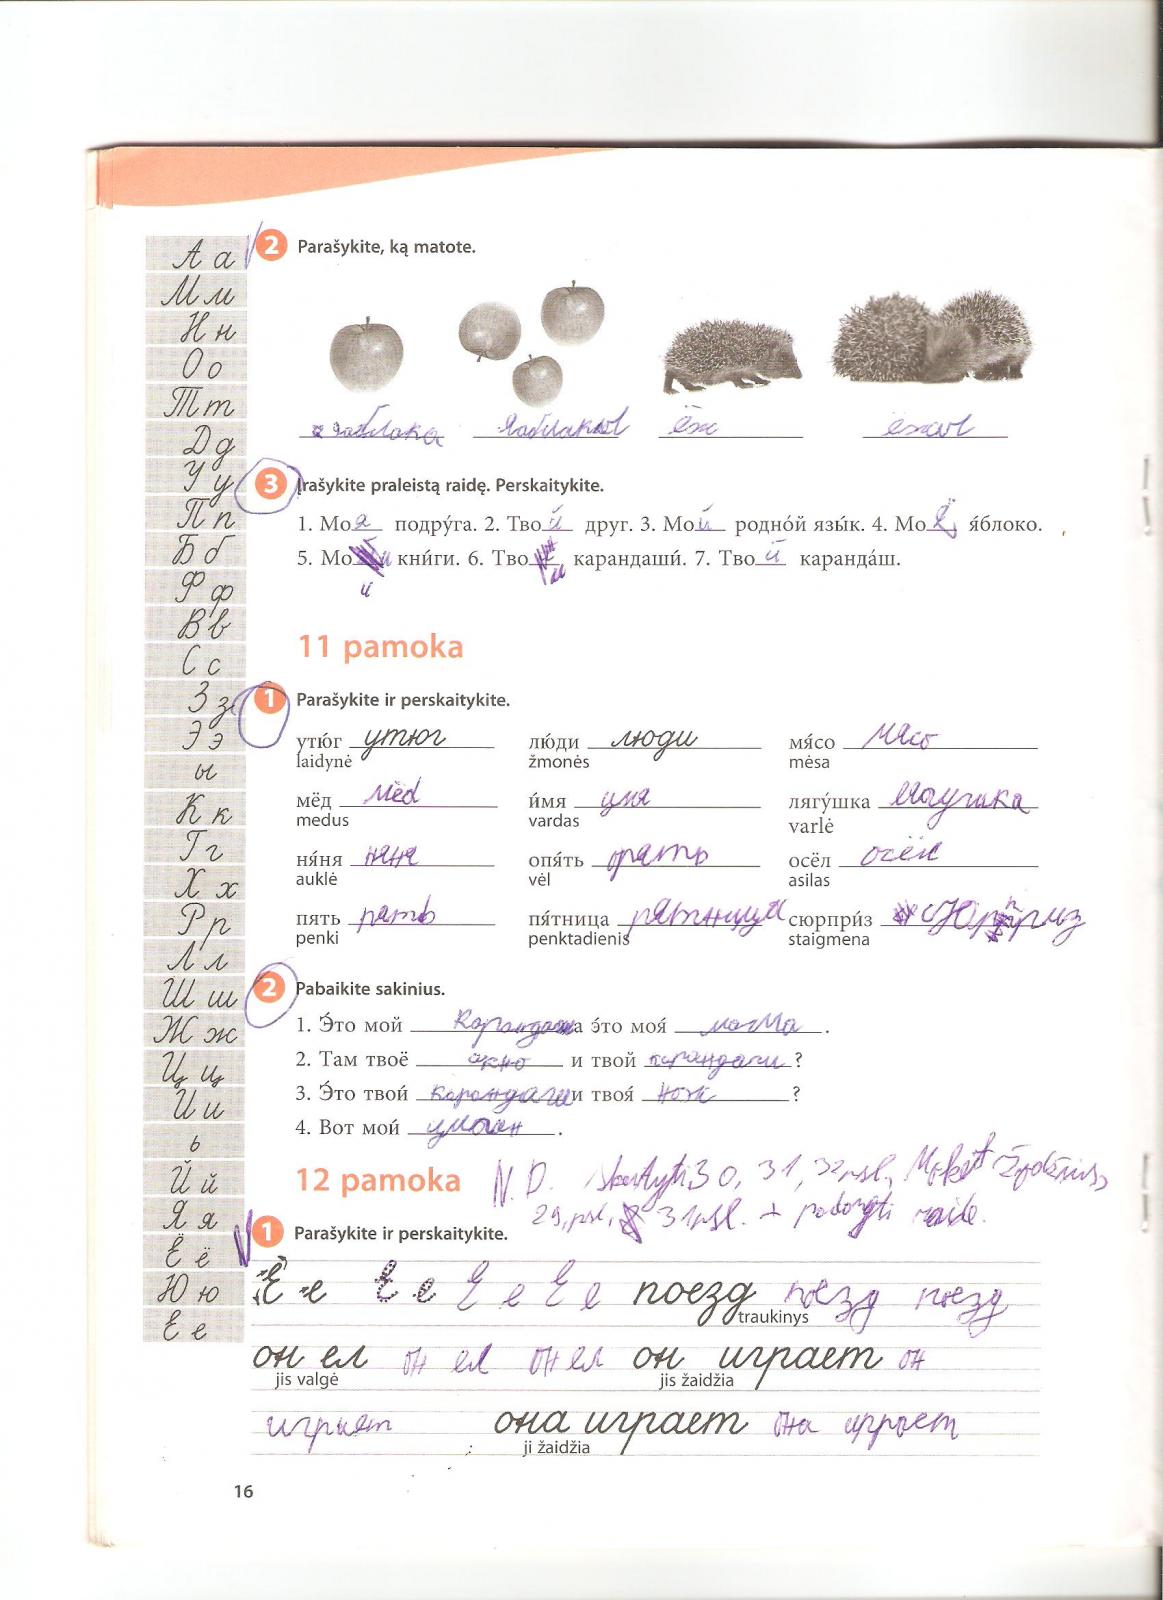 А а
М м
Н н
О о
Т т
Д д
У у
П п
Б б
Ф ф
В в
С с
З з
Э э
ы
К к
Г г
Х х
Р р
Л л
Ш ш
Ж ж
Ц ц
И и
ь
Й й
Я я
Ё ё
Ю ю
Е е
2 Parašykite, ką matote.
яаблака яаблакы ёж ёжы
3 Įrašykite praleistą raidę. Perskaitykite.
1. Моя подру́га. 2. Твой друг. 3. Мой родно́й язы́к. 4. Моё я́блоко.
5. Мои кни́ги. 6. Твои карандаши́. 7. Твой каранда́ш.
11 pamoka
1 Parašykite ir perskaitykite.
утю́г утюг лю́ди люди мя́со мясо
laidynė žmonės mėsa
мёд мёд и́мя имя лягу́шка лягушка
medus vardas varlė
ня́ня няня опя́ть опять осёл осёл
auklė vėl asilas
пять пять пя́тница пятница сюрпри́з сюрприз
penki penktadienis staigmena
2 Pabaikite sakinius.
1. Э́то мой карандаш а э́то моя́ мама.
2. Там твоё окно и твой карандаш?
3. Э́то твой карандаш и твоя́ нож?
4. Вот мой .
12 pamoka N. D. skaityti 30, 31, 32 psl., Mokėt žodžius
29, psl., 31 psl. + padaryti raidė.
1 Parašykite ir perskaitykite.
Е е Е е Е е Е е поезд поезд поезд
traukinys
он ел он ел он ел он играет он
jis valgė jis žaidžia
играет она играет она играет
ji žaidžia
16